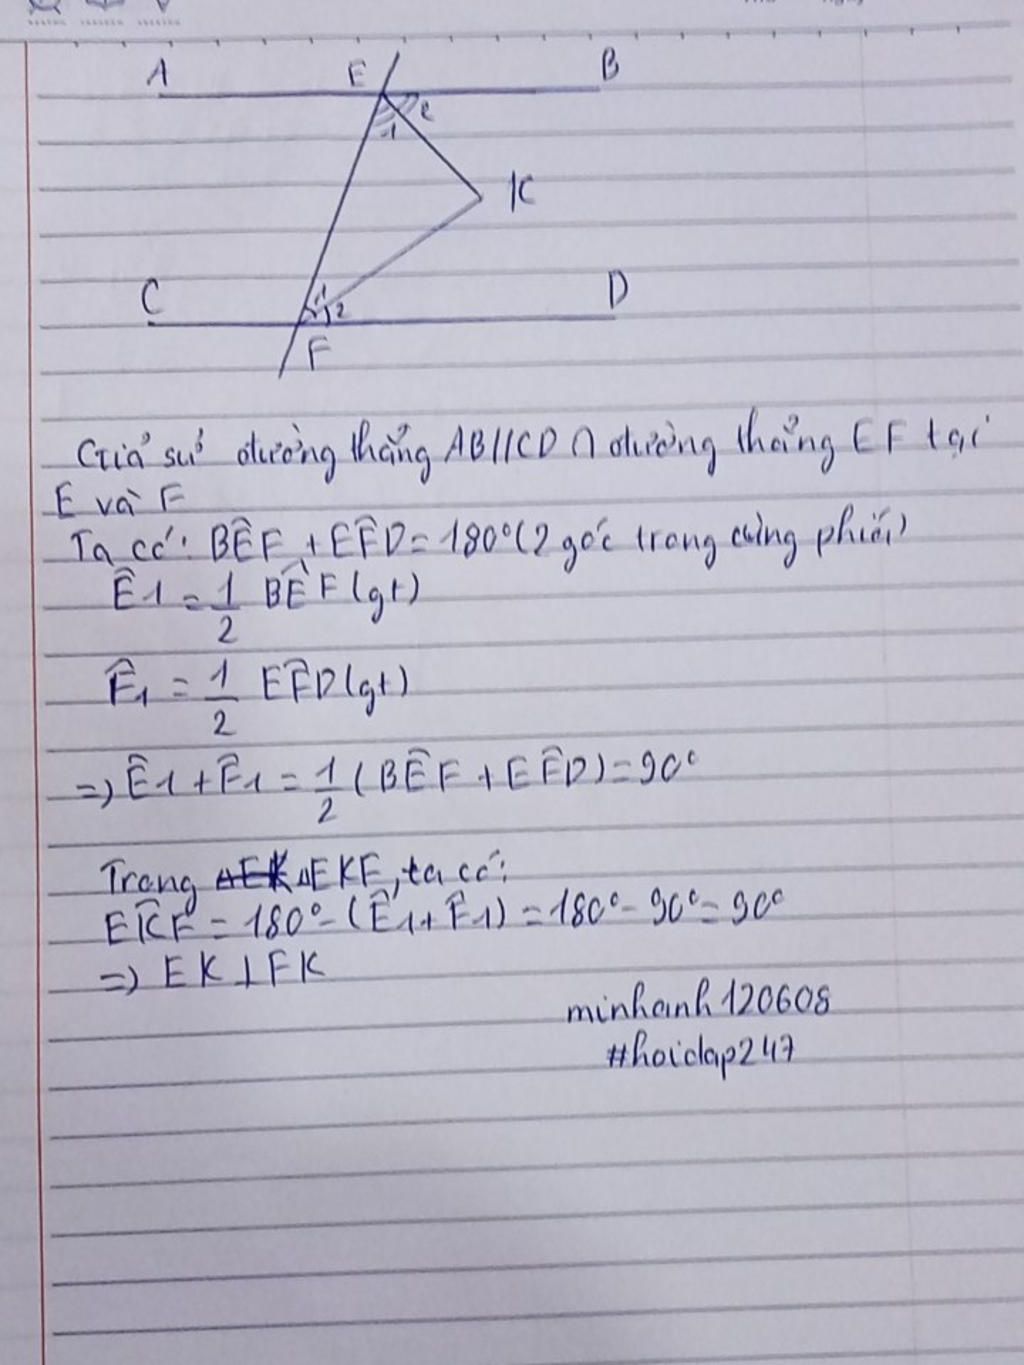 A E B
1 2
K
C D
1 2
F
Giả sử đường thẳng AB//CD ∩ đường thẳng EF tại
E và F
Ta có: BÊF + EF̂D = 180° (2 góc trong cùng phía)
Ê1 = 1/2 BÊF (gt)
F̂1 = 1/2 EF̂D (gt)
=> Ê1 + F̂1 = 1/2 (BÊF + EF̂D) = 90°
Trong ΔEKF, ta có:
EK̂F = 180° - (Ê1 + F̂1) = 180° - 90° = 90°
=> EK ⊥ FK
minhanh120608
#hoidap247